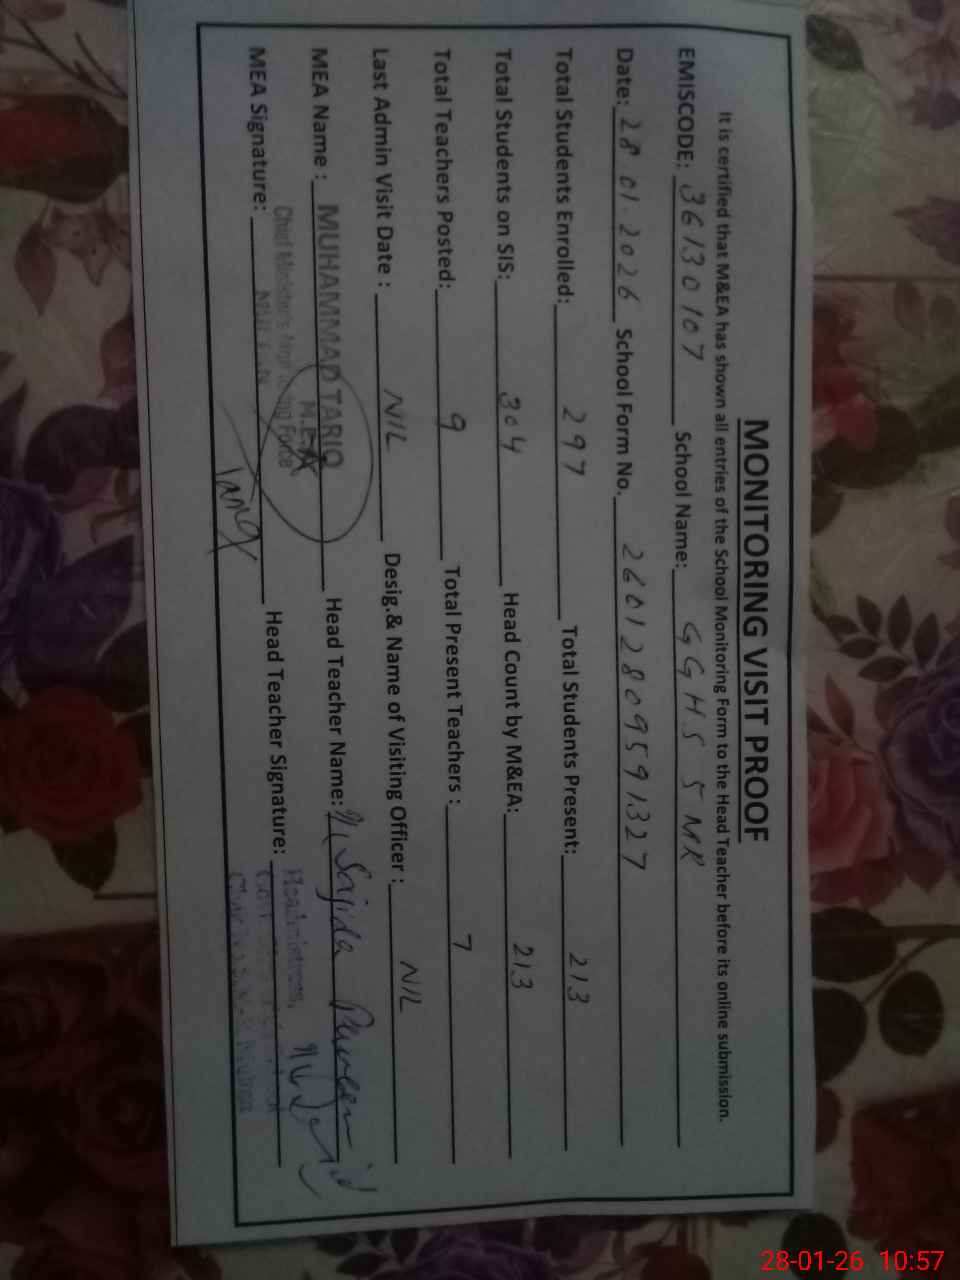 MONITORING VISIT PROOF
It is certified that M&EA has shown all entries of the School Monitoring Form to the Head Teacher before its online submission.
EMISCODE: 36130107 School Name: GGHS 5 MR
Date: 28 01.2026 School Form No. 26012809591327
Total Students Enrolled: 297 Total Students Present: 213
Total Students on SIS: 304 Head Count by M&EA: 213
Total Teachers Posted: 9 Total Present Teachers : 7
Last Admin Visit Date : NIL Desig.& Name of Visiting Officer : NIL
MEA Name : MUHAMMAD TARIQ Head Teacher Name: Sajida Parveen
M.E.A
Chief Minister's Monitoring Force
MULTAN
MEA Signature: Tariq Head Teacher Signature:
Headmistress,
28-01-26 10:57